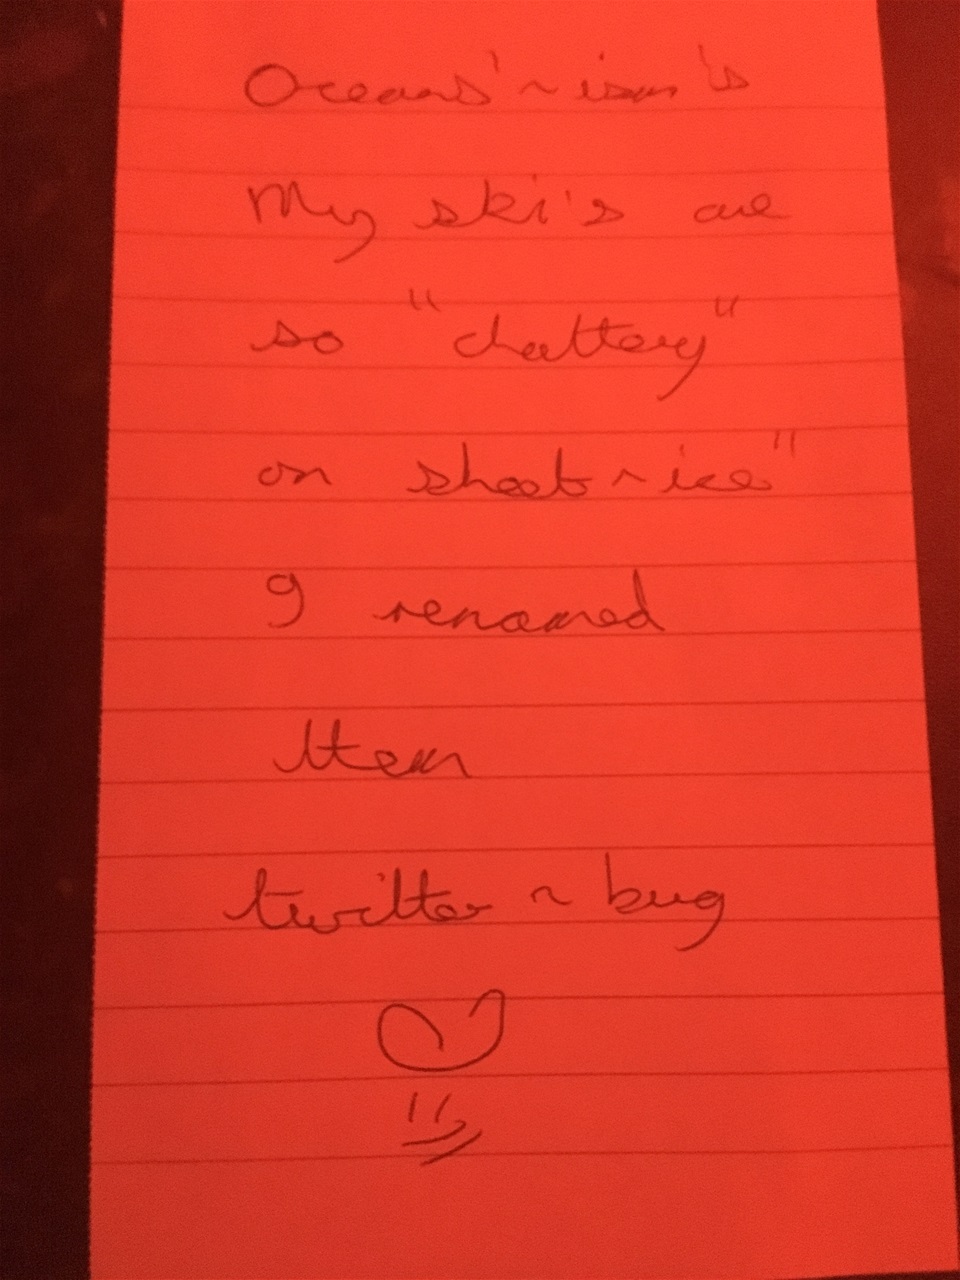 Oceans'~ism's
My ski's are
so "chattery"
on sheet~ice"
I renamed
them
twitter~bug